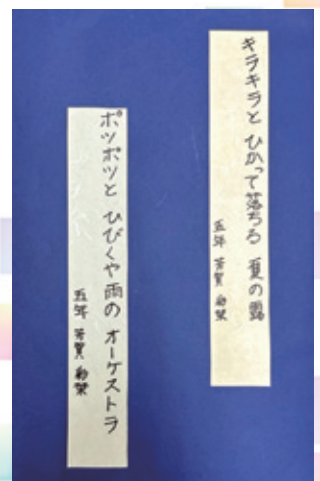 キラキラと ひかって落ちる 夏の露
五年 芳賀
ポツポツと ひびくや雨の オーケストラ
五年 芳賀